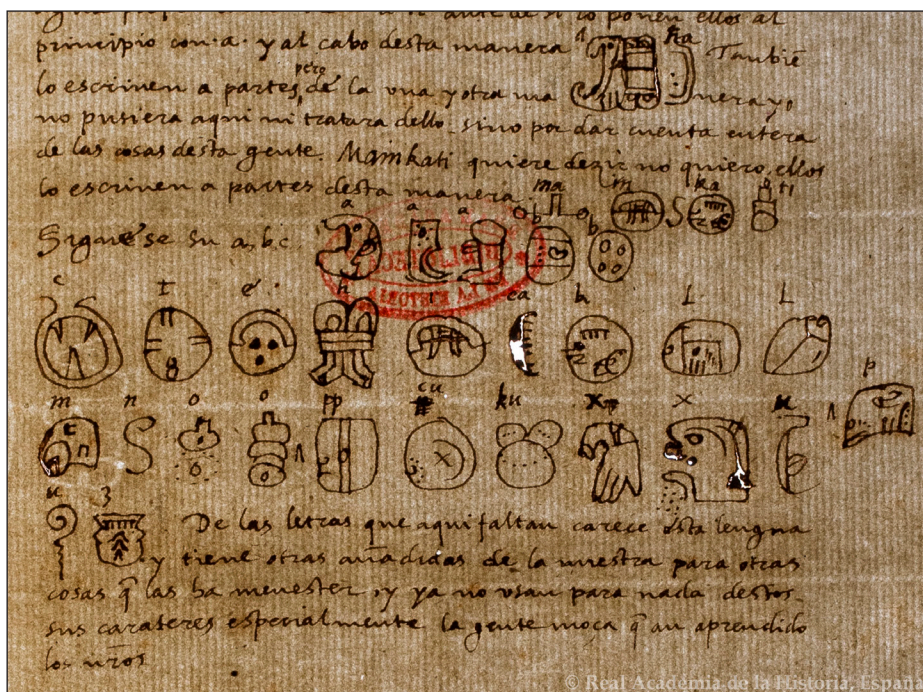 principio con .a. y al cabo desta manera 1 ha Tanbiẽ
lo escriven a partes pero de la una y otra ma nera yo
no pusiera aqui ni tratara dello sino por dar cuenta entera
de las cosas desta gente. Mainkati quiere dezir no quiero, ellos
lo escriven a partes desta manera. ma in ka ti
Siguese su a, b, c. a a a b b
c t e h i ca k L L
m n o o pp cu ku x x u p
u z De las letras que aqui faltan carece esta lengua
y tiene otras añadidas de la nuestra para otras
cosas q̃ las ha menester, y ya no usan para nada destos
sus carateres especialmente la gente moça q̃ an aprendido
los nr̃os
© Real Academia de la Historia. España